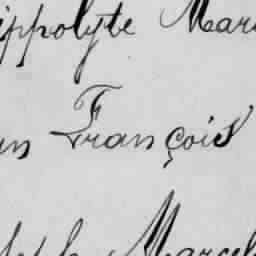 ippolyte Mar
un François
seph Marcel